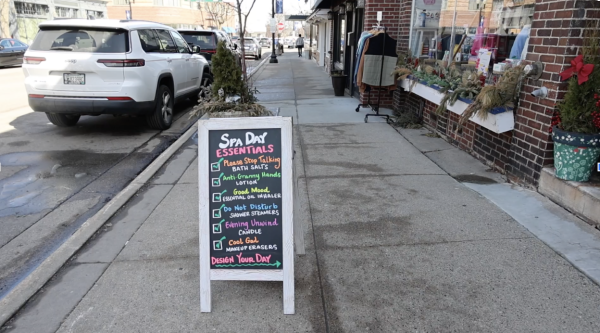 SPA DAY
ESSENTIALS
Please Stop Talking
BATH SALTS
Anti-Granny Hands
LOTION
Good Mood
ESSENTIAL OIL INHALER
Do Not Disturb
SHOWER STEAMERS
Evening Unwind
CANDLE
Cool Gal
MAKEUP ERASERS
DESIGN YOUR DAY